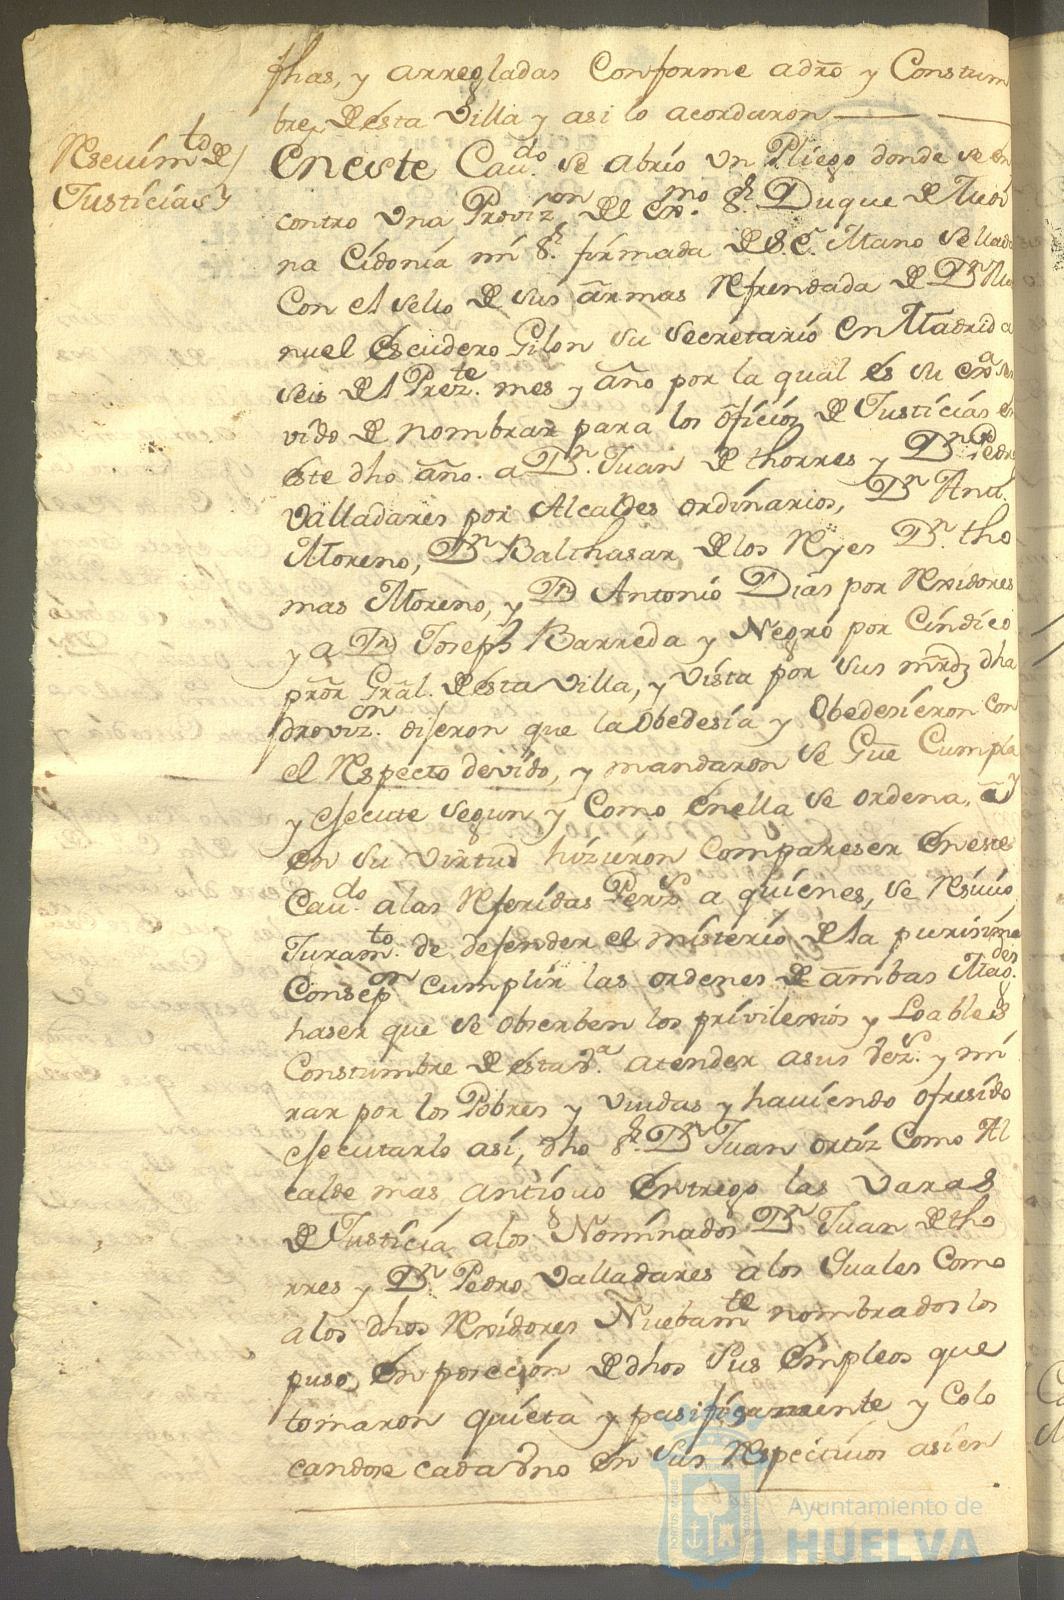 fhas, y arregladas Conforme adro y Constum
bre, de ésta Villa y asi lo acordaron
Resevimto de
Justicias
En este Caudo se abrio un Pliego donde se en
contro una Provizon del exmo Sr Duque de Medi
na Cidonia mi Sr firmada de S.E. Mano Sellada
Con el sello de sus armas Refrendada de Dn Ma
nuel Escudero Gilon su Secretario en Madrid a
seis del Prezte mes y año por la qual és su exa ser
vido de nombrar para los oficios de Justicias en
éste dho año. a Dn Juan de thorres y Dn Pedro
Valladares por Alcaldes ordinarios, Dn Anto
Moreno, Dn Balthasar de los Reyes Dn tho
mas Moreno, y Dn Antonio Dias por Rexidores
y a Dn Joseph Barreda y Negro por Cindico
pror Gral. de ésta Villa, y vista por sus mrdz dha
provizon dijeron que la Obedesia y Obedesieron con
el Respecto devido, y mandaron se Gue Cumpla
y ejecute segun y Como énella se ordena, y
en su virtud hizieron compareser en este
Caudo a las Referidas Pers a quienes, se Resivio
Juramto de defender el misterio de la purisima
Consepon cumplir las ordenes de ambas Magdes
haser que se obserben los privilexios y Loables
Constumbre de ésta Va atender a sus vezs y mi
rar por los Pobres y viudas y haviendo ofresido
ejecutarlo asi, dho Sr Dn Juan ortiz Como Al
calde mas antiguo Entrego las varas
de Justicia a los Nominados Dn Juan de tho
rres y Dn Pedro Valladares a los quales Como
a los dhos Rexidores Nuebamte nombrados los
puso, en posecion de dhos sus Empleos que
tomaron quieta y pasificamente y Colo
candose cada vno en sus Respectivos asien
Ayuntamiento de
HUELVA